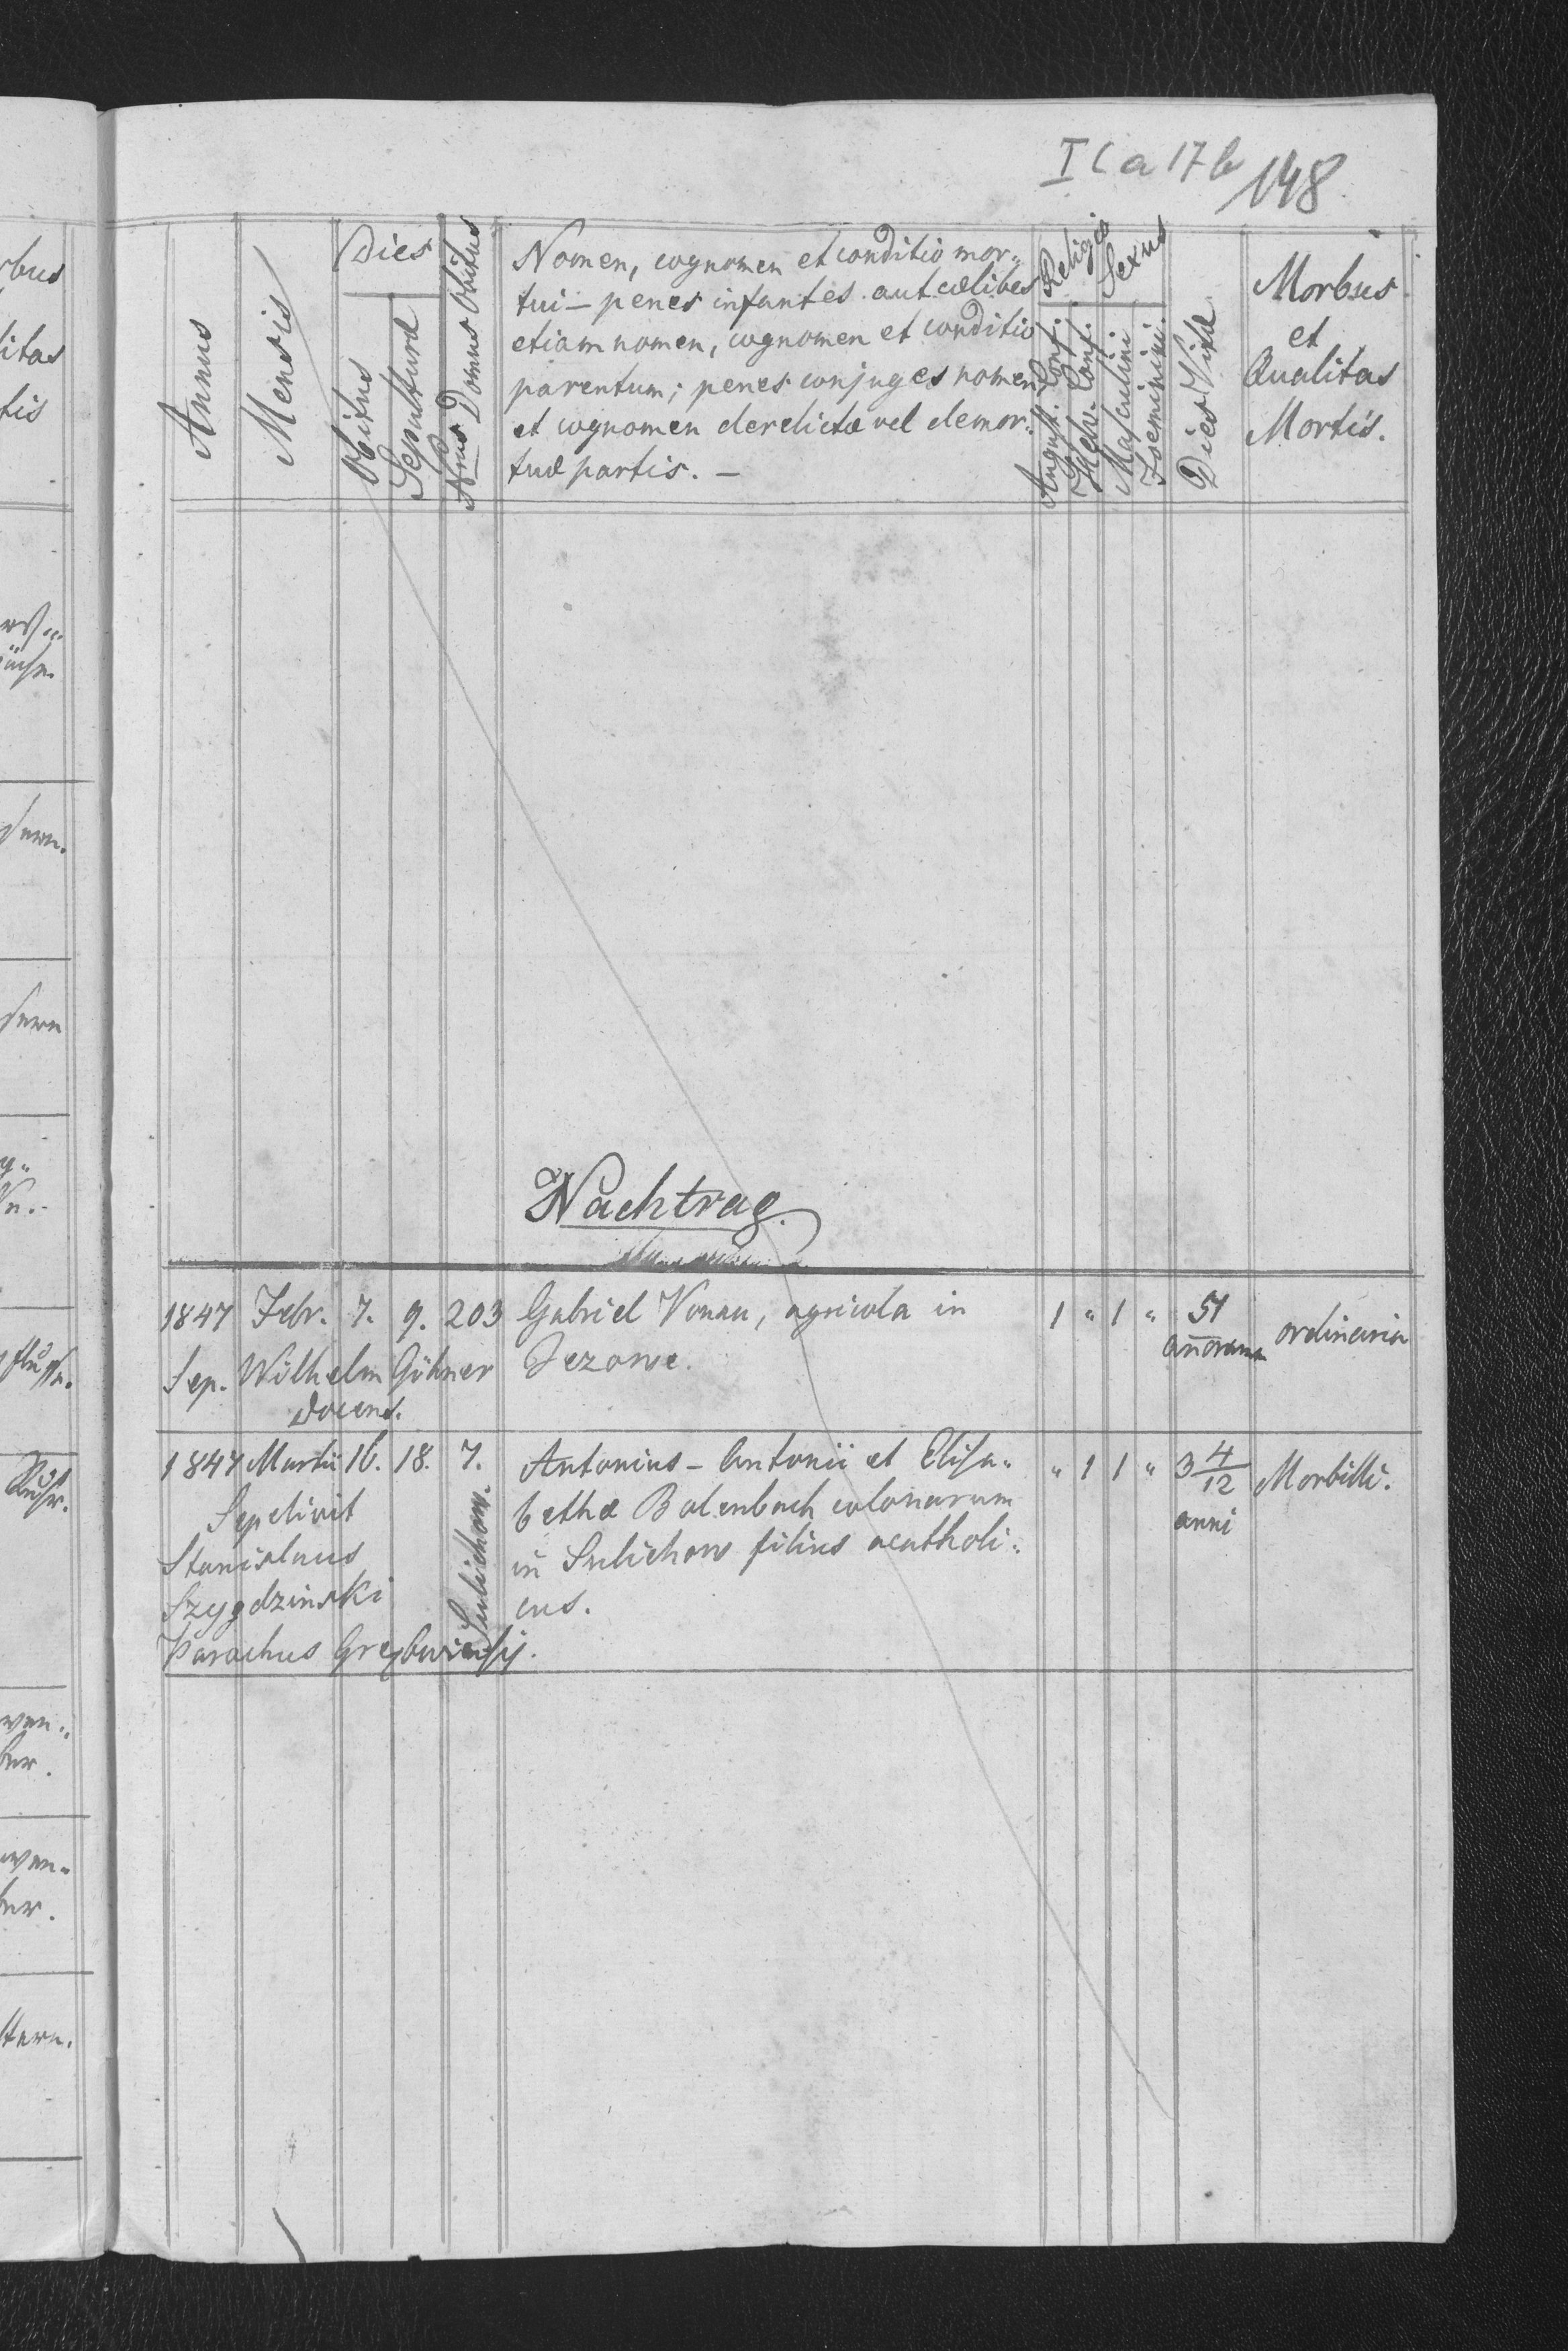 I C a 17 b
148.
Annus
Mensis
Dies
Obitus
Sepulturæ
Nrus Domus Obitus
Nomen, cognomen et conditio mor„
tui – penes infantes aut cœlibes
etiam nomen, cognomen et conditio
parentum; penes conjuges nomen
et cognomen derelictæ vel demor„
tuæ partis. –
Religio
August. Conf.
Helv. Conf.
Sexus
Masculini
Foeminini.
Dies Vitæ
Morbus
et
Qualitas
Mortis.
Nachtrag.
1847 Febr. 7. 9. 203 Gabriel Vonau, agricola in 1 " 1 " 51 ordinaria
Sep. Wilhelm Göhner Jezowe. annorum
docens.
1847 Martii 16. 18. 7. Antonius – Antonii et Elisa„ " 1 1 " 3 4/12 Morbilli.
Sepelivit bethæ Bolenbach colonorum anni
Stanislaus in Sulichow filius acatholi„
Szygdzinski cus.
Sulichow.
Parochus Gręboviensis.